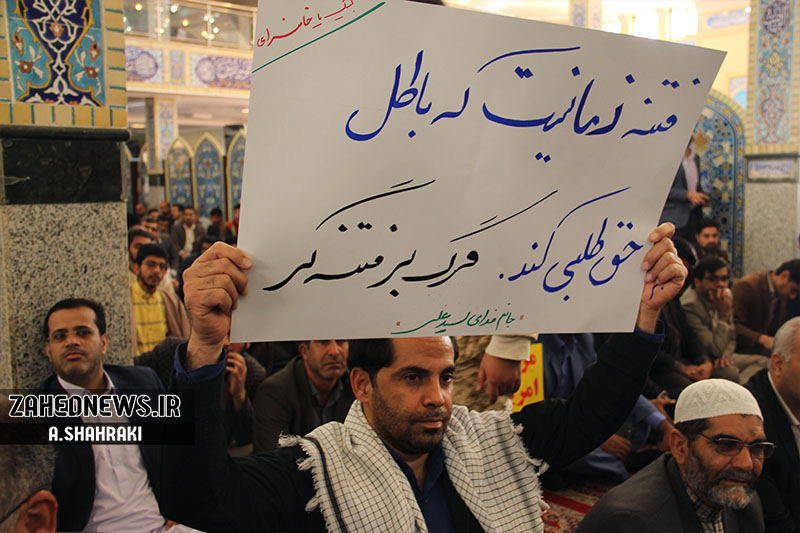 فتنه زمانیست که باطل
حق طلبی کند. مرگ بر فتنه گر
جانم فدای سید علی
ZAHEDNEWS.IR
A.SHAHRAKI